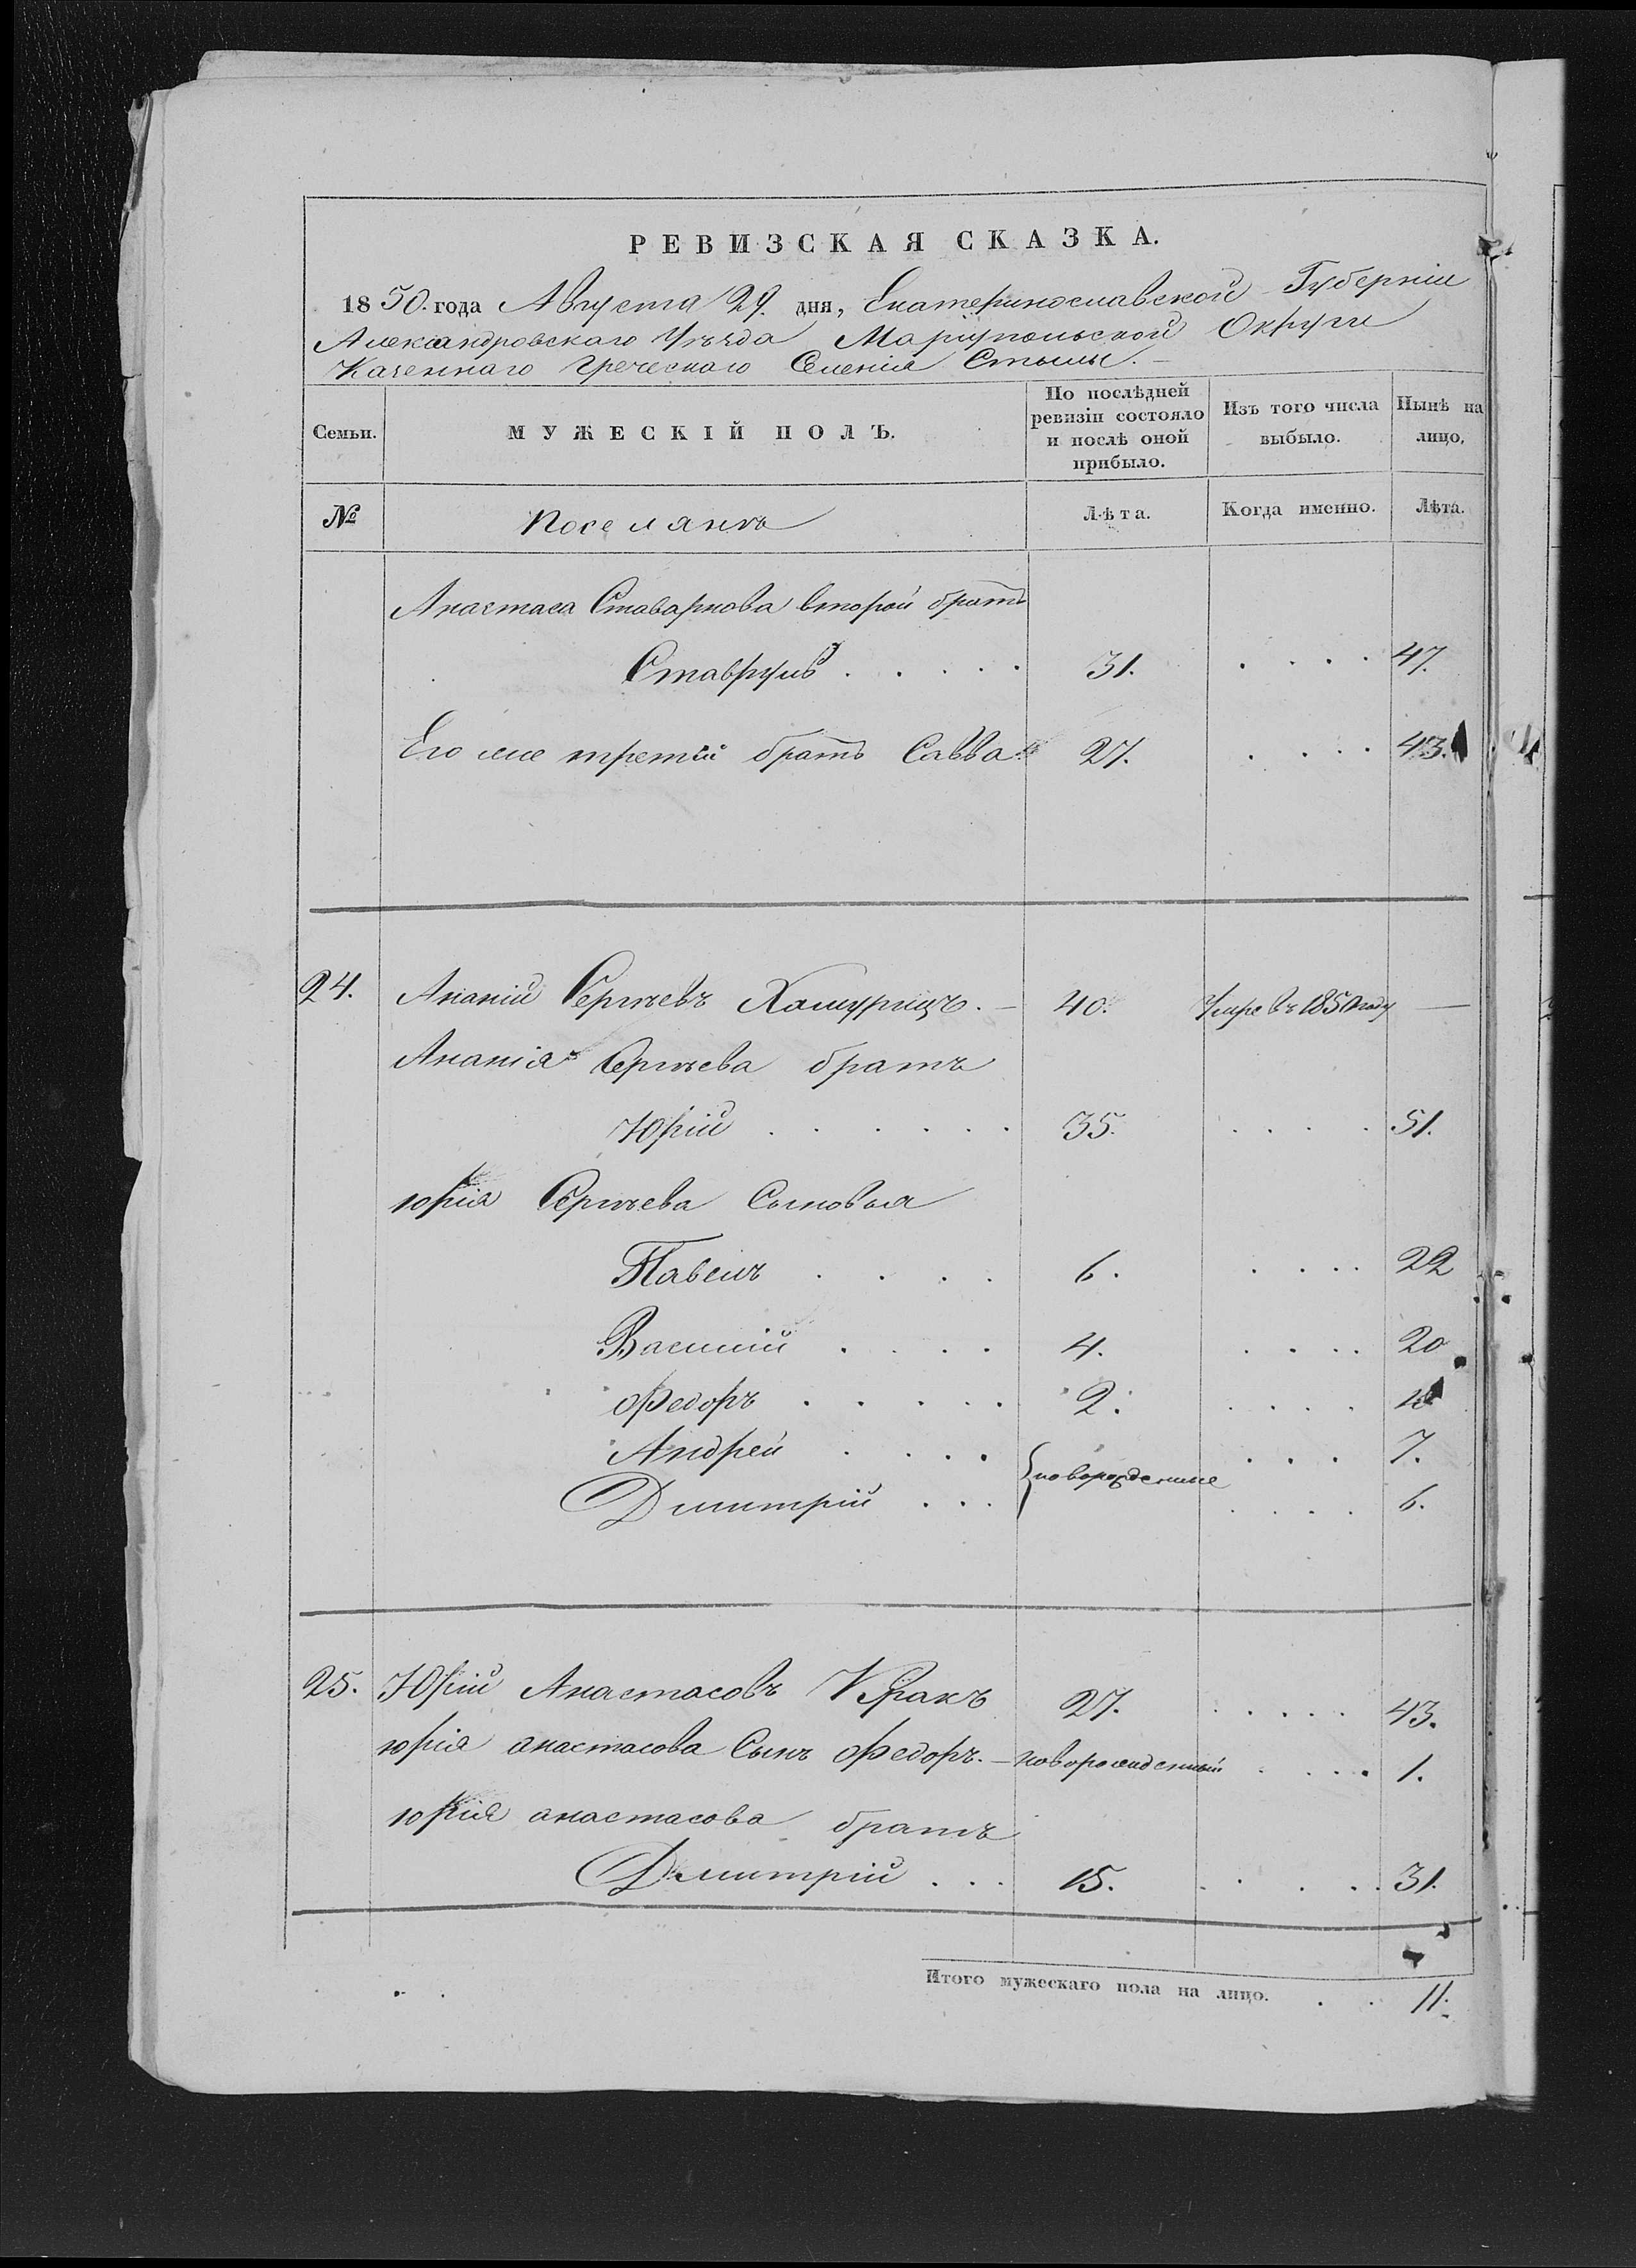 РЕВИЗСКАЯ СКАЗКА.
1850. года Августа 29. дня, Екатеринославской Губерніи
Александровскаго Уѣзда Маріупольской Округи
Казеннаго Греческаго Селенія Стылы. —
Семьи. МУЖЕСКІЙ ПОЛЪ. По послѣдней ревизіи состояло и послѣ оной прибыло. Изъ того числа выбыло. Нынѣ на лицо.
№ Поселянъ Лѣта. Когда именно. Лѣта.
Анастаса Ставаркова второй братъ
Ставрулъ . . . . . 31. . . . . 47.
Его же третій братъ Савва 27. . . . . 43.
24. Ананій Сергѣевъ . — 40. Умре въ 1850 году —
Ананія Сергѣева братъ
Юрій . . . . . . 35. . . . . 51.
юрія Сергѣева Сыновья
Павелъ . . . . 6. . . . . 22
Василій . . . . 4. . . . . 20
Федоръ . . . . . 2. . . . . 18
Андрей . . . . . . . 7.
{новорожденные
Дмитрій . . . . . . . 6.
25. Юрій Анастасовъ 27. . . . . . 43.
юрія анастасова Сынъ Федоръ. — новорожденный . . . . 1.
юрія анастасова братъ
Дмитрій . . . 15. . . . . . 31.
Итого мужескаго пола на лицо. . . 11.